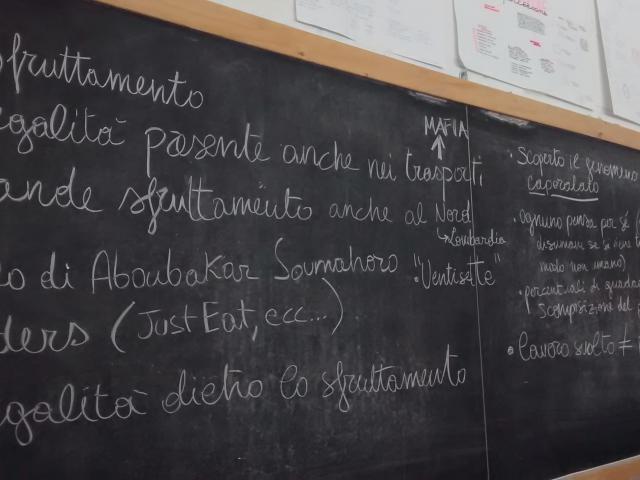 sfruttamento
egalità presente anche nei trasporti
MAFIA
ande sfruttamento anche al Nord
Lombardia
o di Aboubakar Soumahoro • "Ventisette"
ders (Just Eat, ecc...)
egalità dietro lo sfruttamento
• Scoperto il fenomeno
caporalato
• ognuno pensa per sé
disumani se si
modo non umano)
• percentuali di guada
Scomposizione del
• lavoro svolto ≠